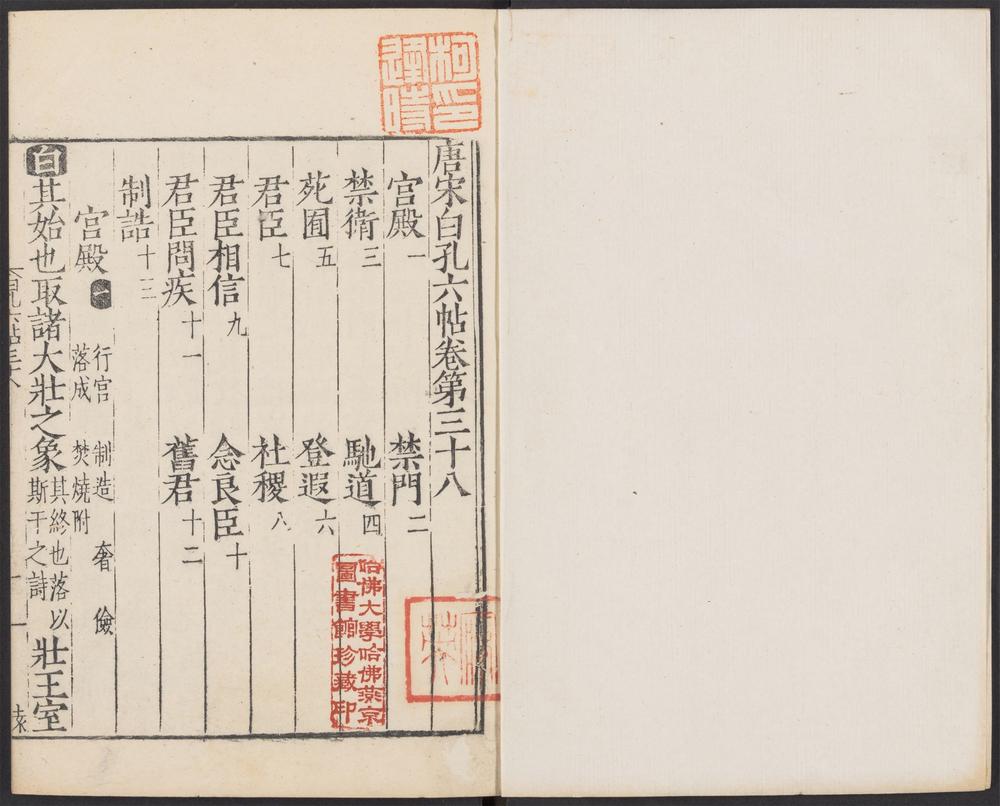 唐宋白孔六帖卷第三十八
宮殿一 禁門二
禁衛三 馳道四
苑囿五 登遐六
君臣七 社稷八
君臣相信九 念良臣十
君臣問疾十一 舊君十二
制誥十三
宮殿一 行宮 制造 奢 儉 落成 焚燒附
白 其始也取諸大壯之象 其終也落以斯干之詩 壯王室
哈佛大學哈佛燕京
圖書館珍藏印
柯印
逢時